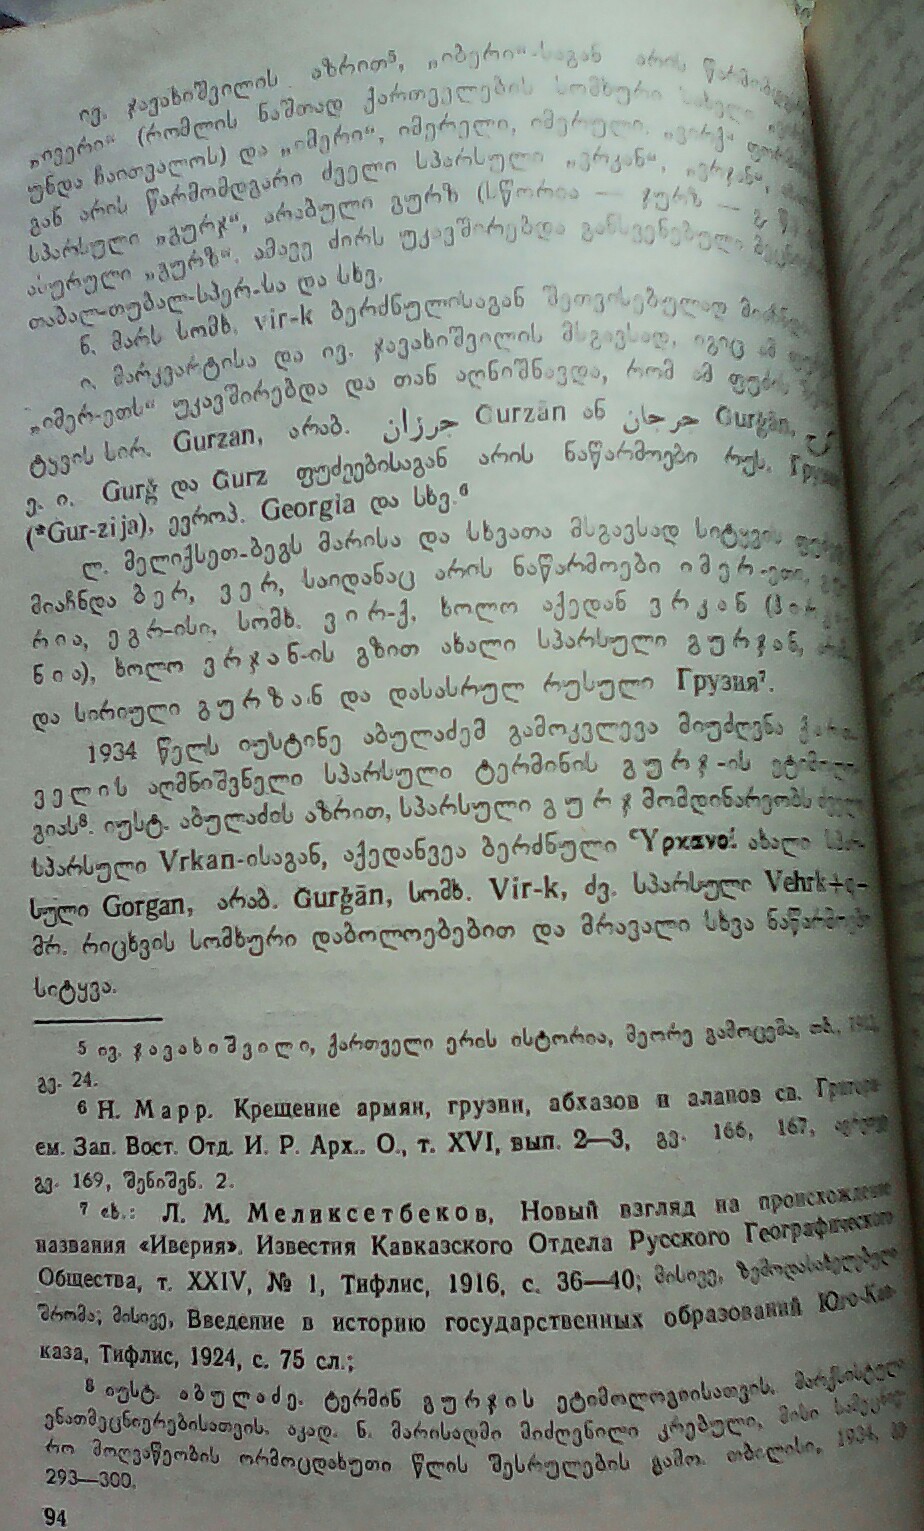 ივ. ჯავახიშვილის აზრით⁵, „იბერი“-საგან არის
„ივერი“ (რომლის ნაშთად ქართველების სომხური სახელი
უნდა ჩაითვალოს) და „იმერი“, იმერელი, იმერული. „ვირქ“
გან არის წარმომდგარი ძველი სპარსული „ვრკან“, „ვრჯან“,
სპარსული „გურჯ“, არაბული გურზ (სწორია — ჯურზ —
ასურული „გურზ“. ამავე ძირს უკავშირებდა განსვენებული
თაბალ-თუბალ-სპერ-სა და სხვ.
ნ. მარს სომხ. vir-k ბერძნულისაგან შეთვისებულად
ი. მარკვარტისა და ივ. ჯავახიშვილის მსგავსად, იგიც ამ
„იმერ-ეთს“ უკავშირებდა და თან აღნიშნავდა, რომ ამ ფუძის
ტყვის სირ. Gurzan, არაბ. جرزان Gurzān ან جرجان Gurğān,
ე. ი. Gurğ და Gurz ფუძეებისაგან არის ნაწარმოები რუს.
(*Gur-zija), ევროპ. Georgia და სხვ.⁶
ლ. მელიქსეთ-ბეგს მარისა და სხვათა მსგავსად სიტყვის
მიაჩნდა ბერ, ვერ, საიდანაც არის ნაწარმოები იმერ-ეთი,
რია, ეგრ-ისი, სომხ. ვირ-ქ, ხოლო აქედან ვრკან
ნია), ხოლო ვრჯან-ის გზით ახალი სპარსული გურჯან,
და სირიული გურზან და დასასრულ რუსული Грузия⁷.
1934 წელს იუსტინე აბულაძემ გამოკვლევა მიუძღვნა
ველის აღმნიშვნელი სპარსული ტერმინის გურჯ-ის
გიას⁸. იუსტ. აბულაძის აზრით, სპარსული გურჯ მომდინარეობს
სპარსული Vrkan-ისაგან, აქედანვეა ბერძნული ʽΥρκανοί ახალი
სული Gorgan, არაბ. Gurğān, სომხ. Vir-k, ძვ. სპარსული
მრ. რიცხვის სომხური დაბოლოებებით და მრავალი სხვა
სიტყვა.
5 ივ. ჯავახიშვილი, ქართველი ერის ისტორია, მეორე გამოცემა, თბ.,
გვ. 24.
6 Н. Марр. Крещение армян, грузин, абхазов и аланов св. Григори-
ем. Зап. Вост. Отд. И. Р. Арх.. О., т. XVI, вып. 2—3, გვ. 166, 167,
გვ. 169, შენიშვნ. 2.
7 იხ.: Л. М. Меликсетбеков, Новый взгляд на происхождение
названия «Иверия». Известия Кавказского Отдела Русского Географического
Общества, т. XXIV, № 1, Тифлис, 1916, с. 36—40; მისივე, ზემოდასახელებული
შრომა; მისივე, Введение в историю государственных образований Юго-Кав-
каза, Тифлис, 1924, с. 75 сл.;
8 იუსტ. აბულაძე. ტერმინ გურჯის ეტიმოლოგიისათვის.
ენათმეცნიერებისათვის, აკად. ნ. მარისადმი მიძღვნილი კრებული, მისი
რო მოღვაწეობის ორმოცდახუთი წლის შესრულების გამო. თბილისი, 1934,
293—300.
94